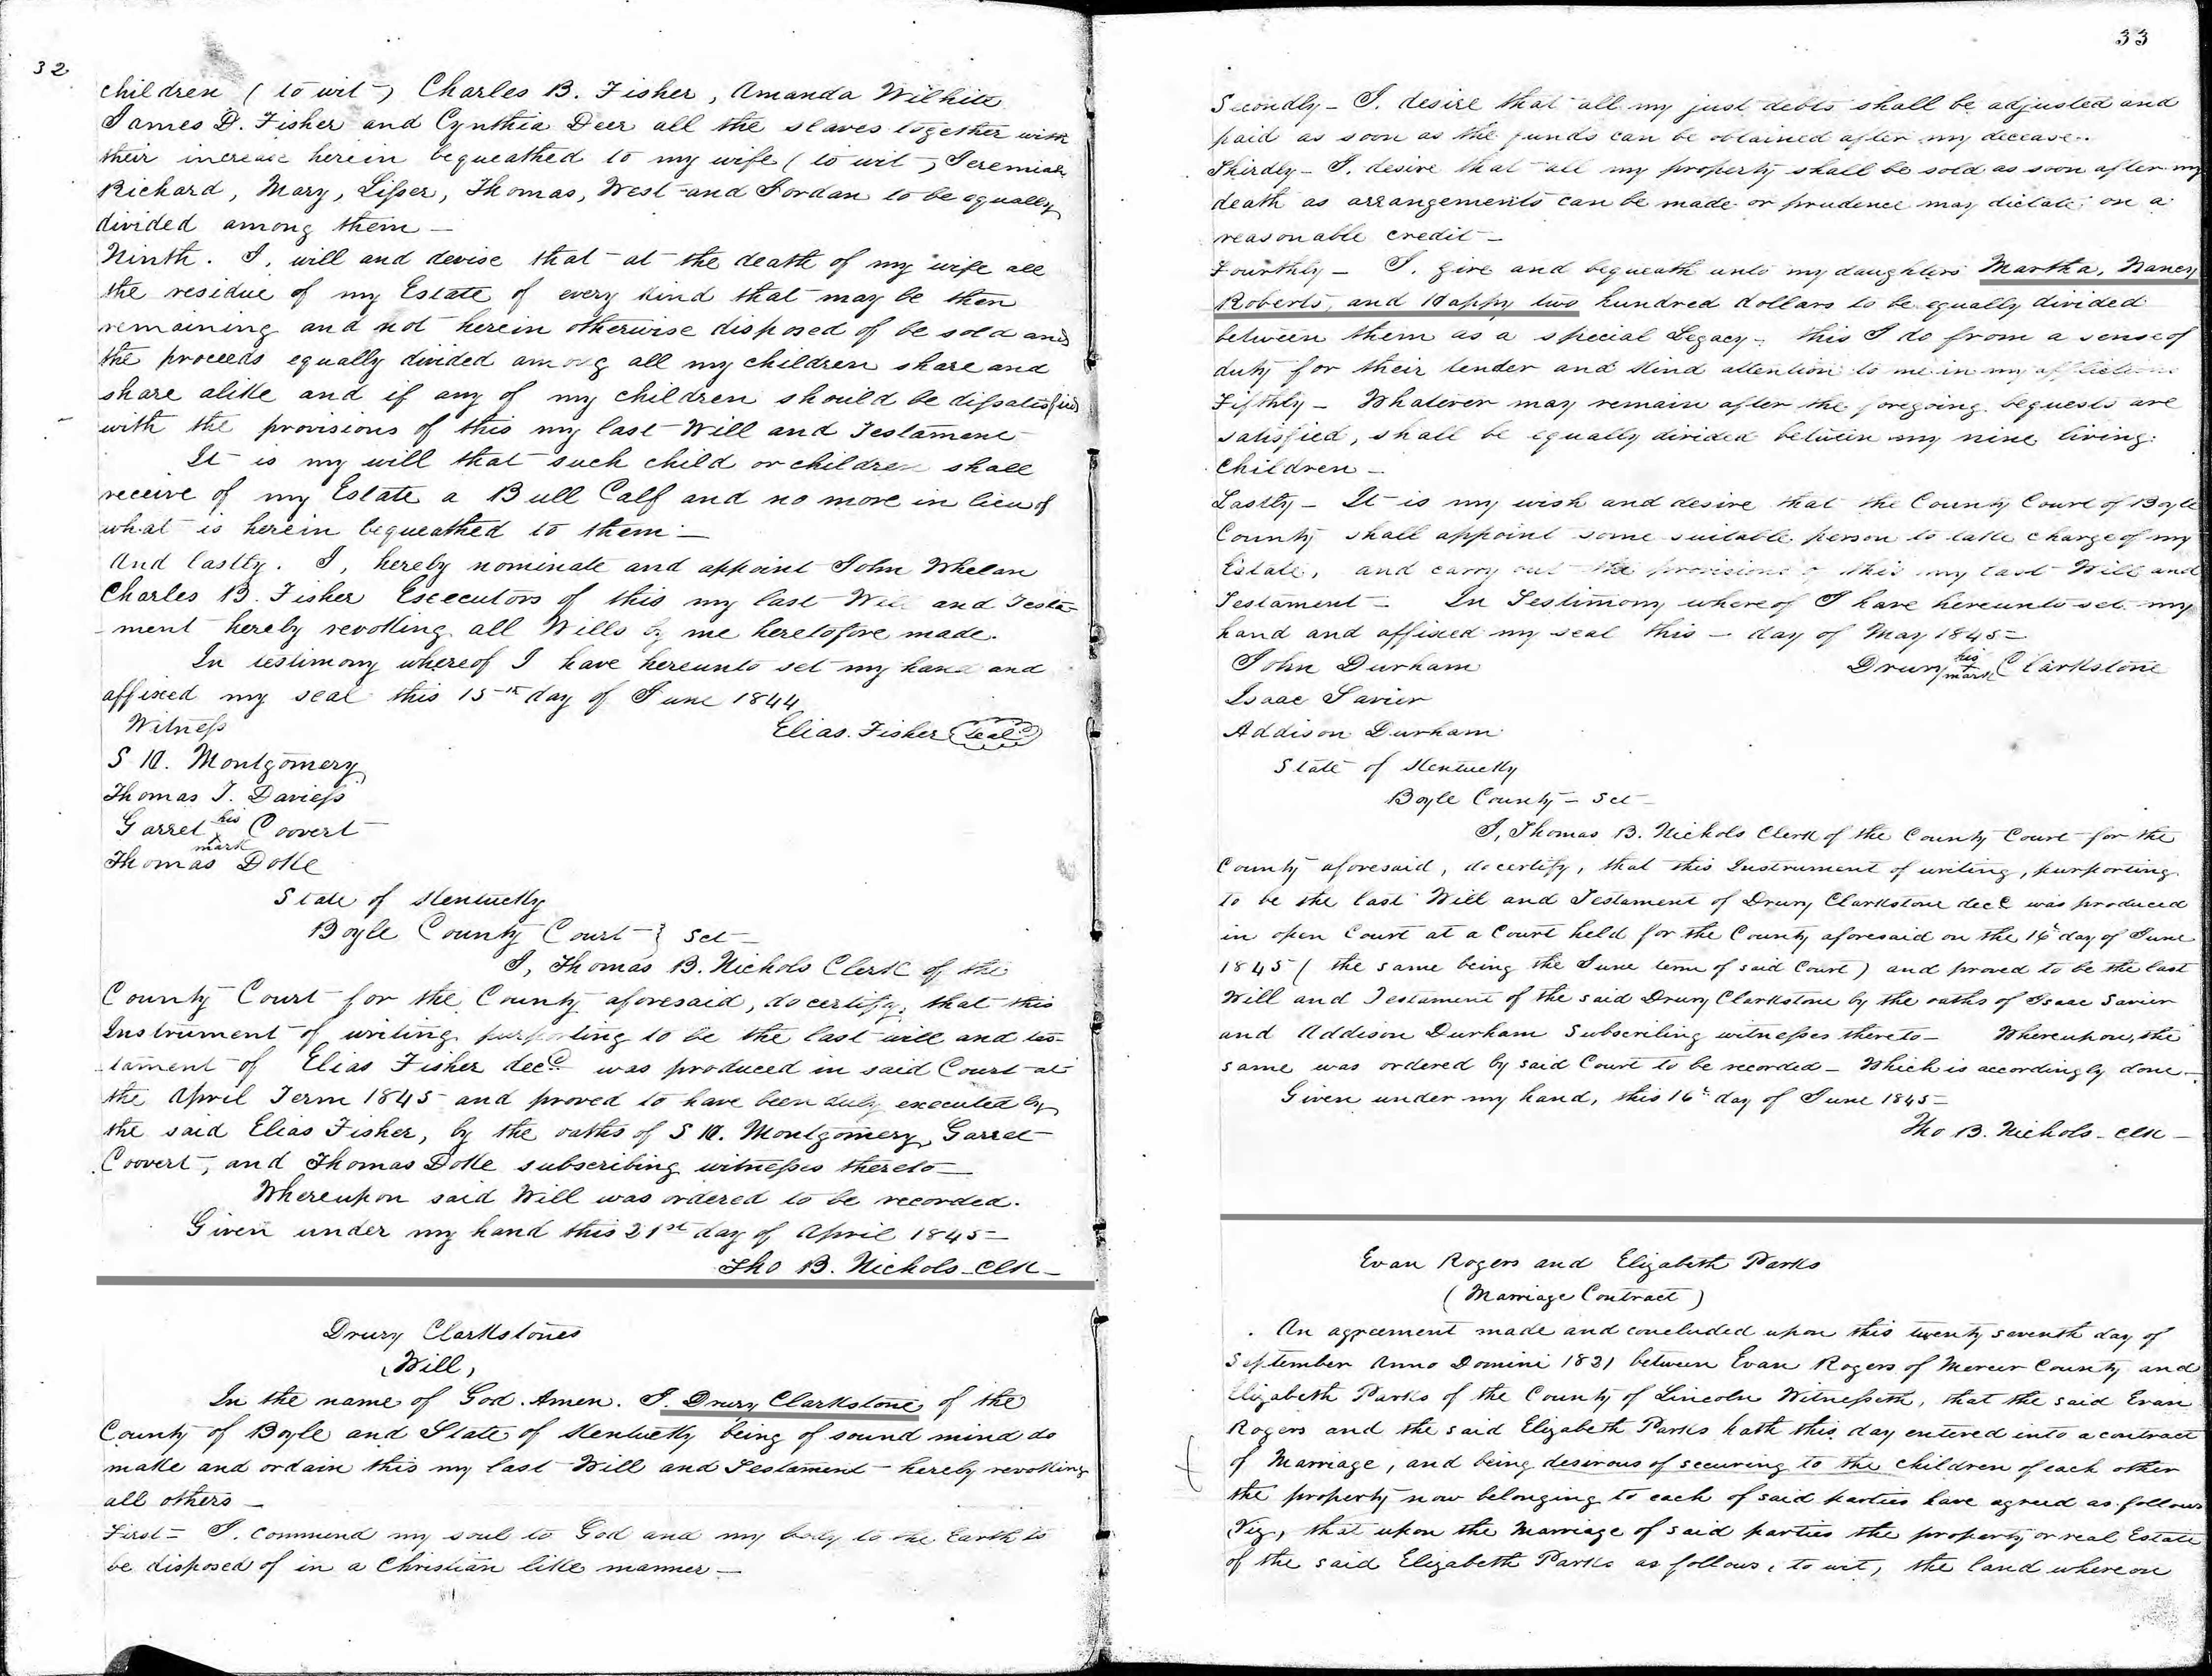 32
children (to wit) Charles B. Fisher, Amanda Wilhite
James D. Fisher and Cynthia Deer all the slaves together with
their increase herein bequeathed to my wife (to wit) Jeremiah
Richard, Mary, Lisser, Thomas, West and Jordan to be equally
divided among them —
Ninth. I, will and devise that at the death of my wife all
the residue of my Estate of every kind that may be then
remaining and not herein otherwise disposed of be sold and
the proceeds equally divided among all my children share and
share alike and if any of my children should be dissatisfied
with the provisions of this my last Will and Testament
It is my will that such child or children shall
receive of my Estate a Bull Calf and no more in lieu of
what is herein bequeathed to them —
And lastly. I, hereby nominate and appoint John Whelan
Charles B. Fisher Executors of this my last Will and Testa-
-ment hereby revoking all Wills by me heretofore made.
In testimony whereof I have hereunto set my hand and
affixed my seal this 15th day of June 1844
Witness
Elias. Fisher (Seal)
S. K. Montgomery
Thomas T. Daviess
Garret his x mark Coovert
Thomas Doke
State of Kentucky
Boyle County Court } Sct —
I, Thomas B. Nichols Clerk of the
County Court for the County aforesaid, do certify, that this
Instrument of writing purporting to be the last will and tes-
-tament of Elias Fisher decd was produced in said Court at
the April Term 1845 and proved to have been duly executed by
the said Elias Fisher, by the oaths of S K. Montgomery, Garret
Coovert, and Thomas Doke subscribing witnesses thereto —
Whereupon said Will was ordered to be recorded.
Given under my hand this 21st day of April 1845 —
Tho B. Nichols — Clk —
Drury Clarkstones
(Will)
In the name of God. Amen. I. Drury Clarkstone of the
County of Boyle and State of Kentucky being of sound mind do
make and ordain this my last Will and Testament — hereby revoking
all others —
First — I. commend my soul to God and my body to the Earth to
be disposed of in a Christian like manner —
33
Secondly — I. desire that all my just debts shall be adjusted and
paid as soon as the funds can be obtained after my decease.
Thirdly — I. desire that all my property shall be sold as soon after my
death as arrangements can be made or prudence may dictate, on a
reasonable credit —
Fourthly — I. give and bequeath unto my daughters Martha, Nancy
Roberts, and Happy two hundred dollars to be equally divided
between them as a special Legacy — this I do from a sense of
duty for their tender and kind attention to me in my afflictions
Fifthly — Whatever may remain after the foregoing bequests are
satisfied, shall be equally divided between my nine living
Children —
Lastly — It is my wish and desire that the County Court of Boyle
County shall appoint some suitable person to take charge of my
Estate, and carry out the provisions of this my last Will and
Testament — In Testimony whereof I have hereunto set my
hand and affixed my seal this — day of May 1845 —
John Durham
Drury his + mark Clarkstone
Isaac Savier
Addison Durham
State of Kentucky
Boyle County — Sct —
I, Thomas B. Nichols Clerk of the County Court for the
County aforesaid, do certify, that this Instrument of writing, purporting
to be the last Will and Testament of Drury Clarkstone decd was produced
in open Court at a Court held for the County aforesaid on the 16th day of June
1845 (the same being the June term of said Court) and proved to be the last
Will and Testament of the said Drury Clarkstone by the oaths of Isaac Savier
and Addison Durham Subscribing witnesses thereto — Whereupon, the
same was ordered by said Court to be recorded — Which is accordingly done —
Given under my hand, this 16th day of June 1845 —
Tho B. Nichols — Clk —
Evan Rogers and Elizabeth Parks
(Marriage Contract)
An agreement made and concluded upon this twenty seventh day of
September Anno Domini 1821 between Evan Rogers of Mercer County and
Elizabeth Parks of the County of Lincoln Witnesseth, that the said Evan
Rogers and the said Elizabeth Parks hath this day entered into a contract
of Marriage, and being desirous of securing to the children of each other
the property now belonging to each of said parties have agreed as follows
(Viz, that upon the Marriage of said parties the property or real Estate
of the said Elizabeth Parks as follows, to wit, the land whereon